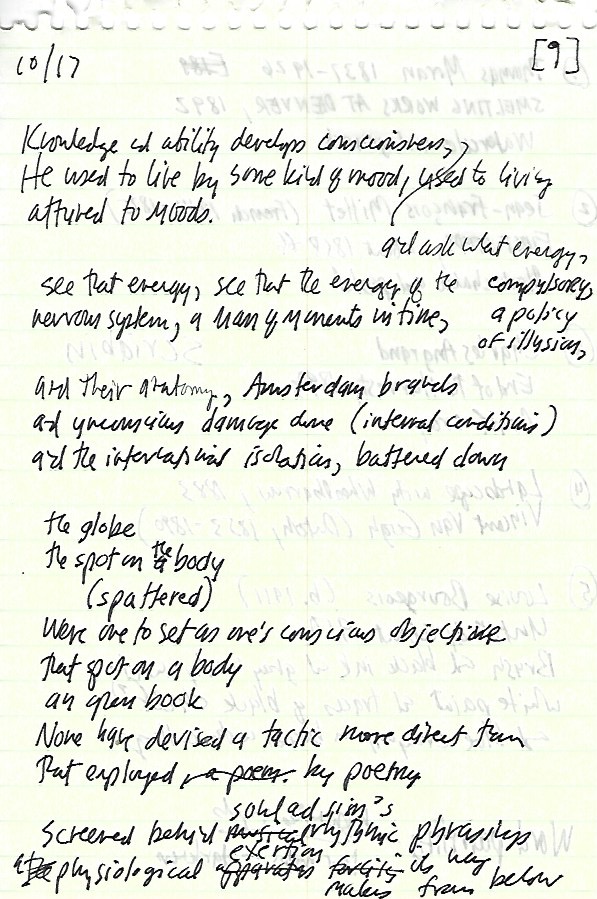 10/17 [9]
Knowledge and ability develops consciousness,
He used to live by some kind of mood, used to living
attured to moods.
and ask what energy,
see that energy, see that the energy of the compulsory,
nervous system, a man of moments in time, a policy
of illusion,
and their anatomy, Amsterdam brands
and unconscious damage done (internal conditions)
and the international isolation, battered down
the globe
the spot on a the body
(spattered)
Were one to set as one's conscious objective
that spot on a body
an open book
None have devised a tactic more direct than
That employed a poem. by poetry
soul ad sim's
Screened behind musical rhythmic phrasings
exertion
physiological apparatus its way
makes from below